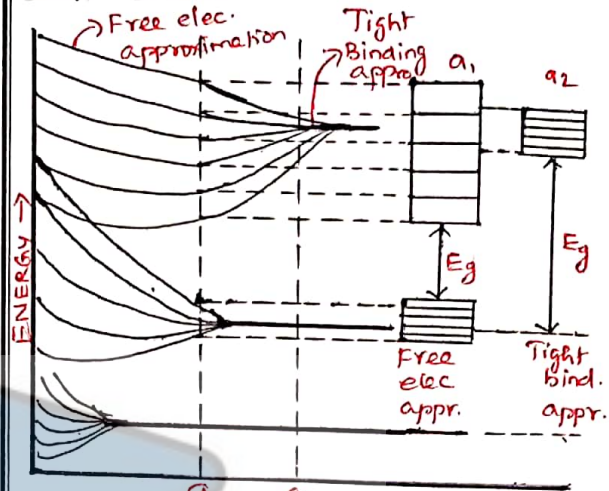 Free elec.
approximation
Tight
Binding
appro
a1
a2
ENERGY →
Eg
Eg
Free
elec
appr.
Tight
bind.
appr.